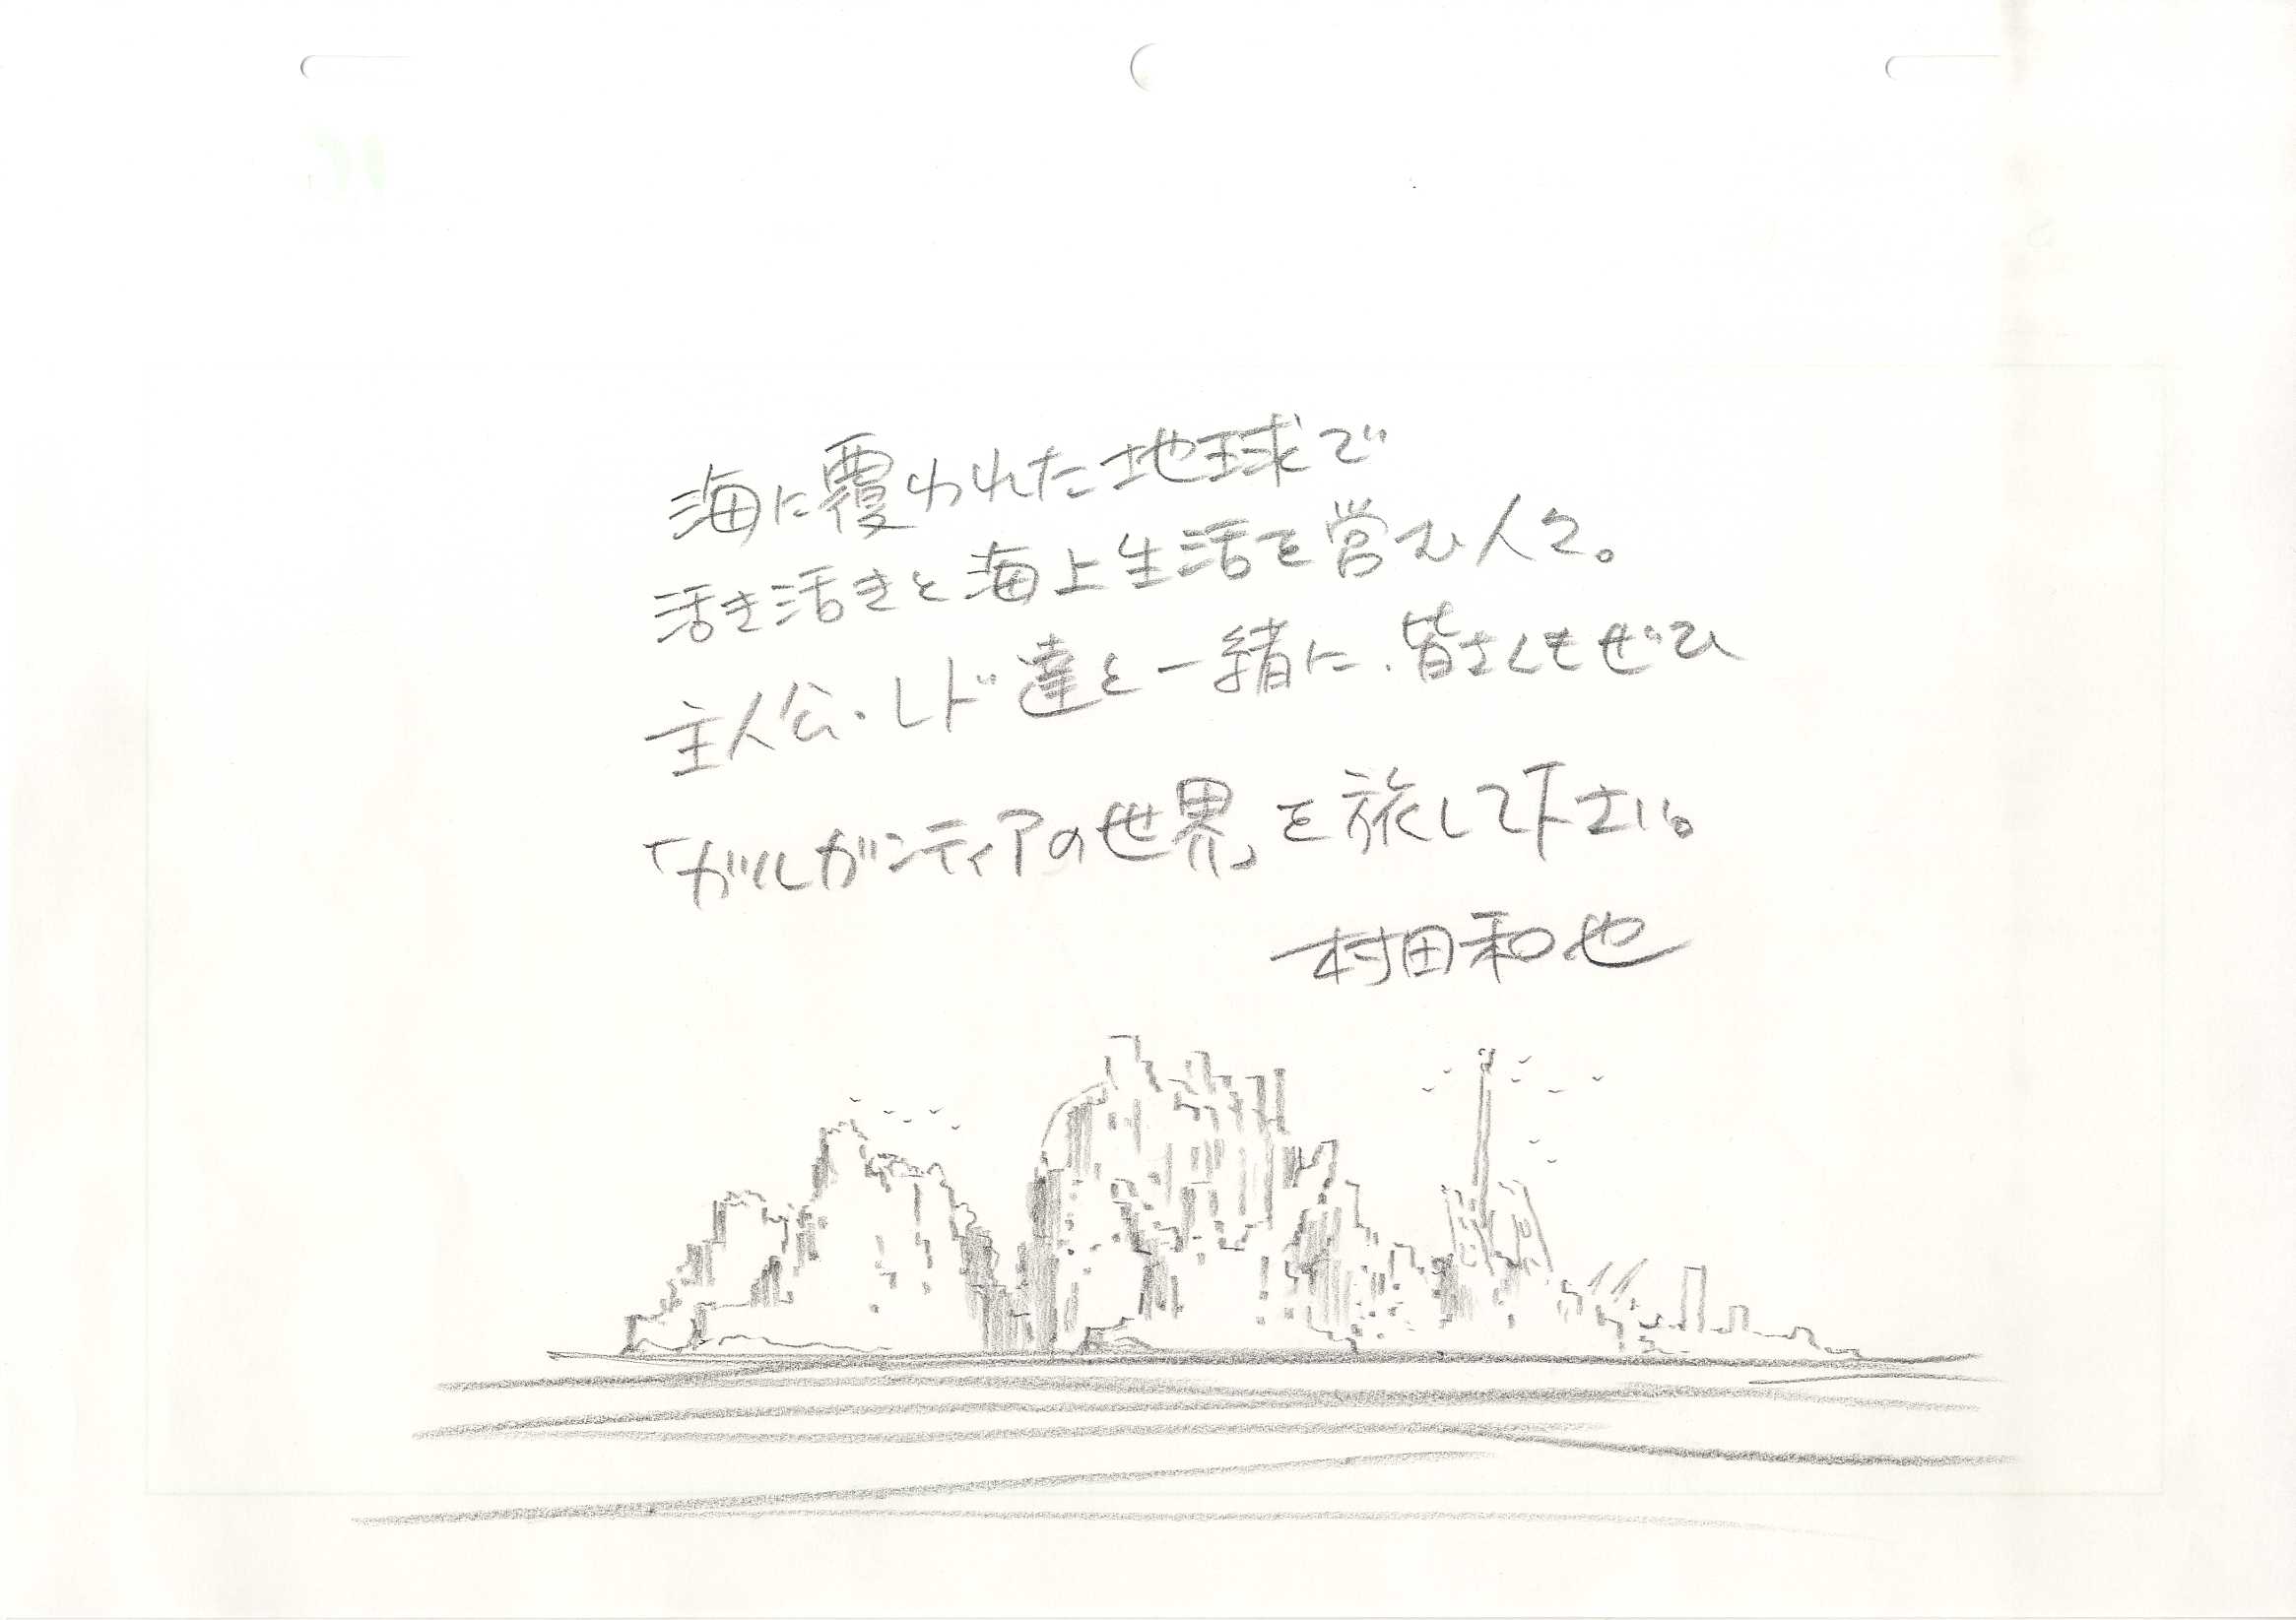 海に覆われた地球で
活き活きと海上生活を営む人々。
主人公・レド達と一緒に、皆さんもぜひ
「ガルガンティアの世界」を旅して下さい。
村田和也